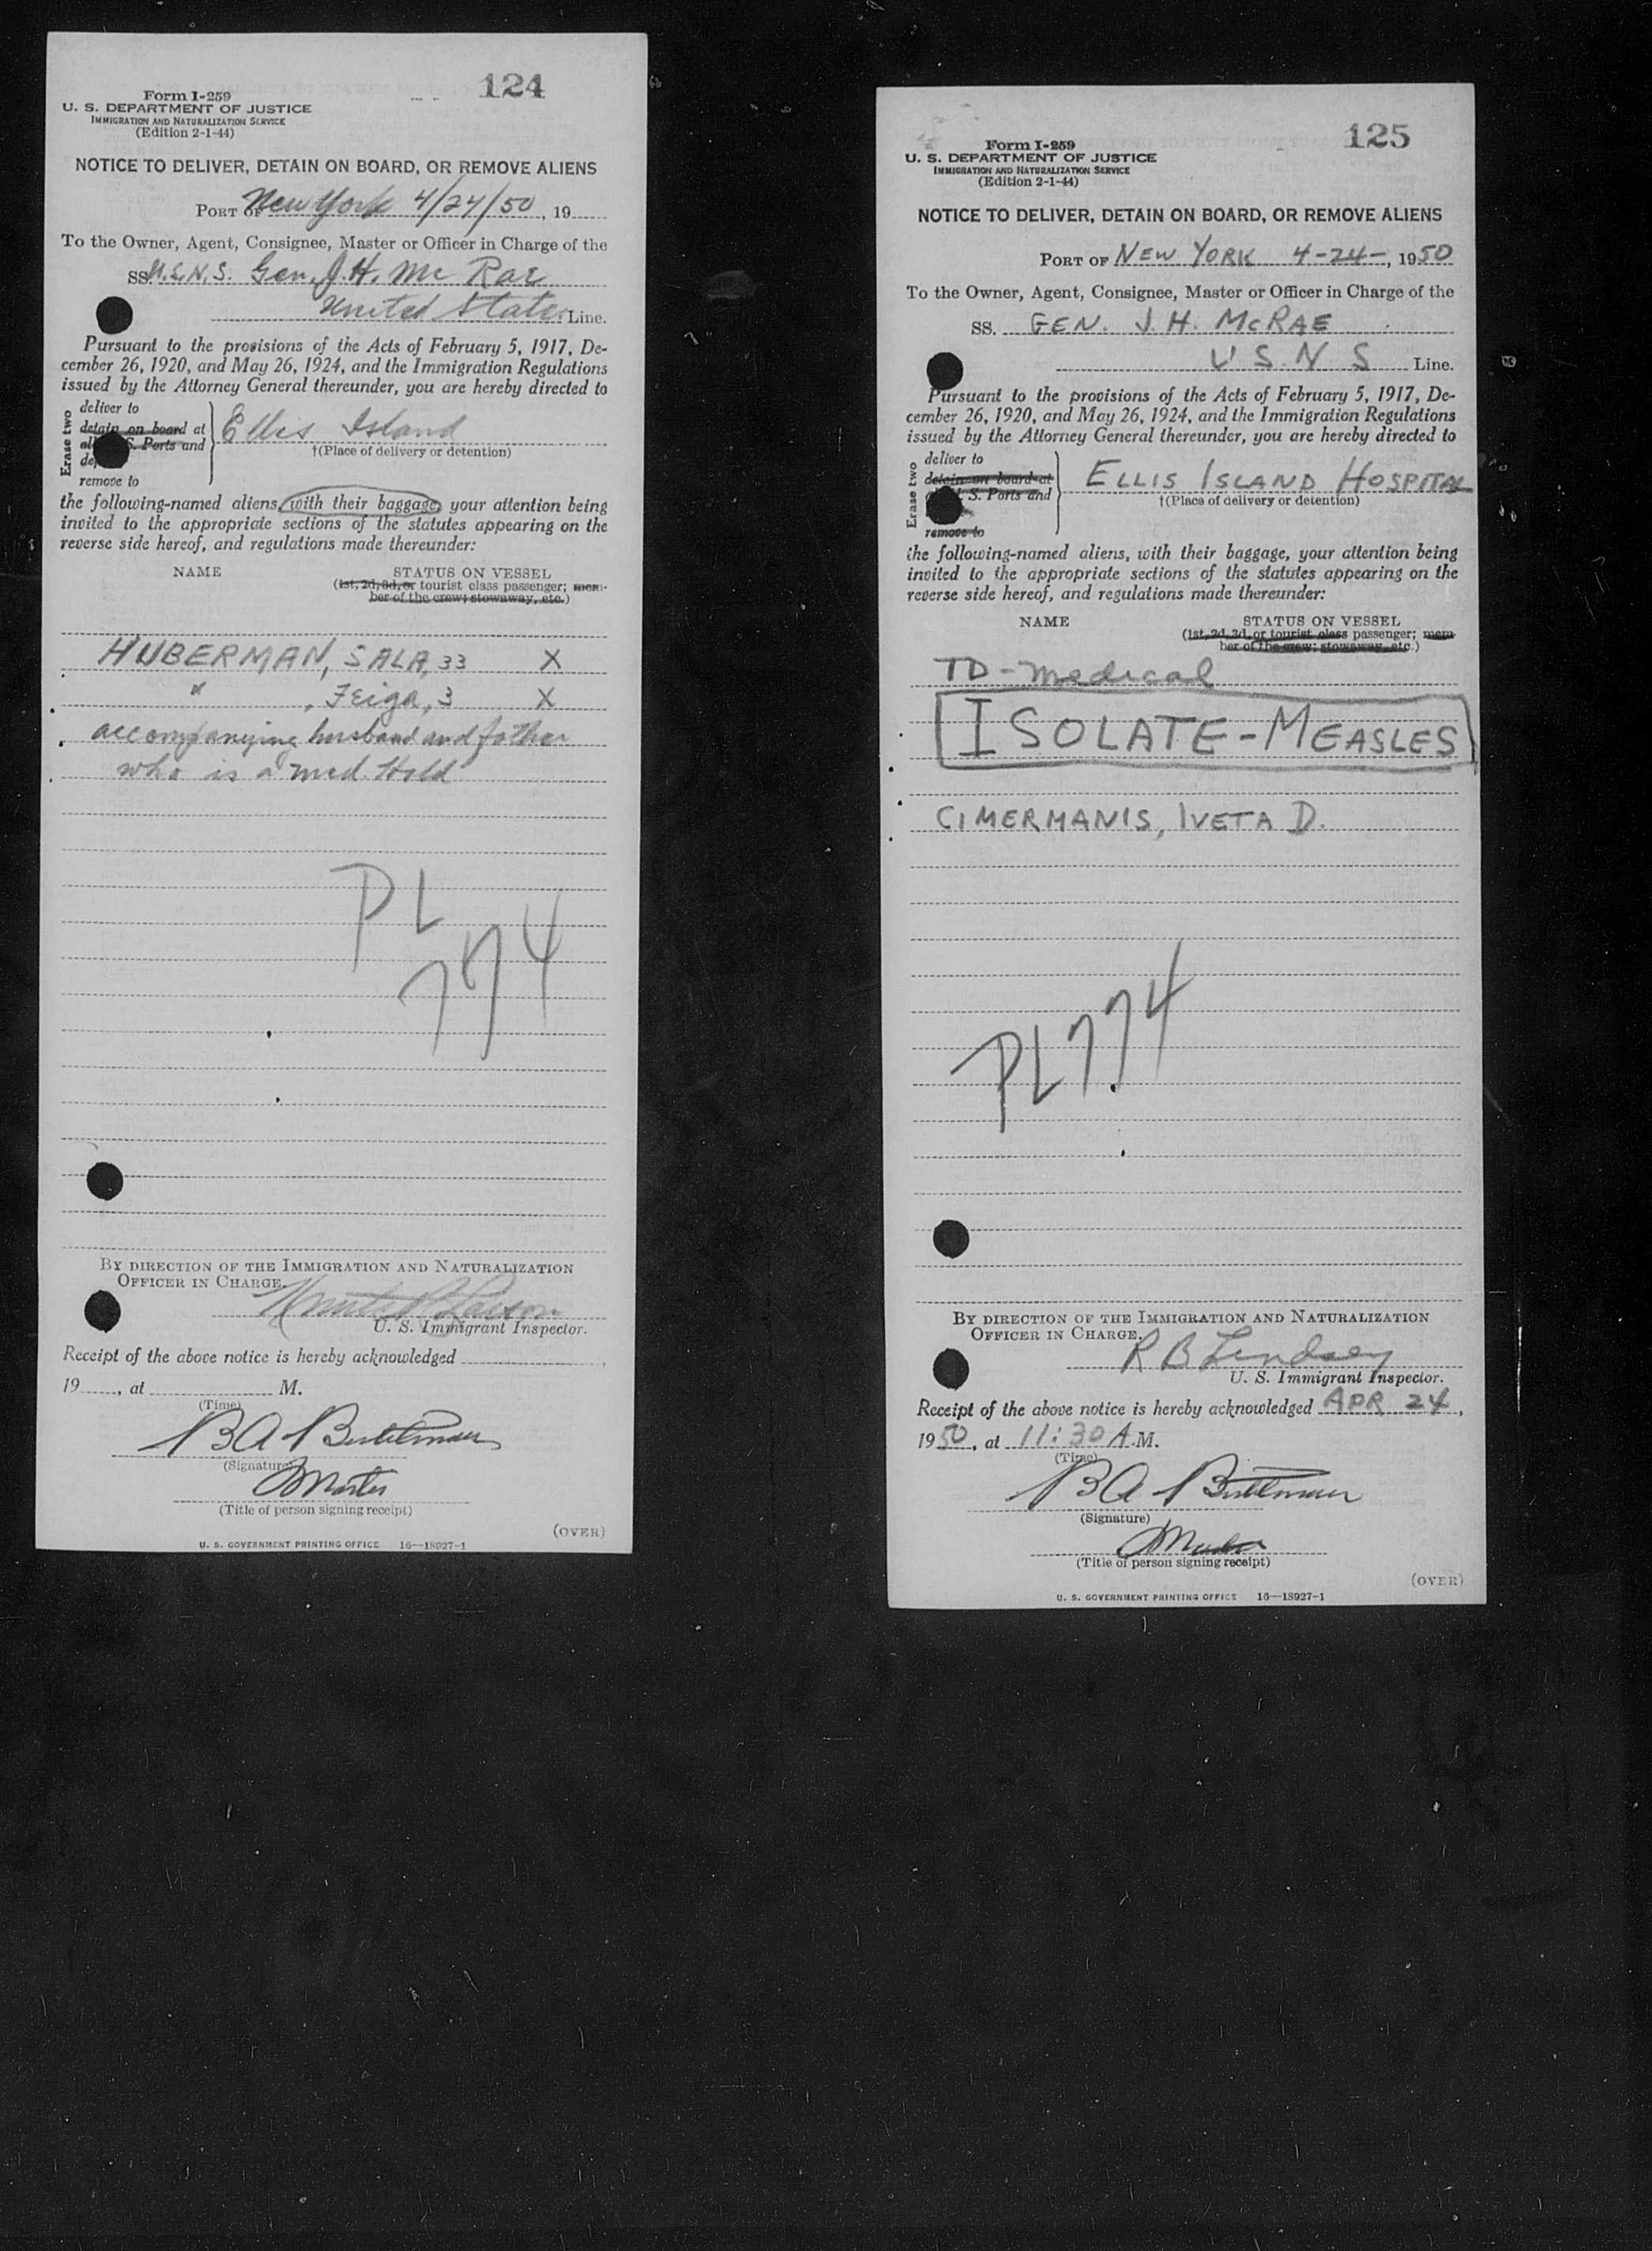 124
Form I-259
U. S. DEPARTMENT OF JUSTICE
IMMIGRATION AND NATURALIZATION SERVICE
(Edition 2-1-44)
NOTICE TO DELIVER, DETAIN ON BOARD, OR REMOVE ALIENS
PORT OF New York 4/24/50, 19
To the Owner, Agent, Consignee, Master or Officer in Charge of the
SS. U.S.N.S. Gen. J.H. Mc Rae
United States Line.
Pursuant to the provisions of the Acts of February 5, 1917, De-
cember 26, 1920, and May 26, 1924, and the Immigration Regulations
issued by the Attorney General thereunder, you are hereby directed to
Erase two
deliver to
detain on board at
S. Ports and
remove to
Ellis Island
†(Place of delivery or detention)
the following-named aliens, with their baggage, your attention being
invited to the appropriate sections of the statutes appearing on the
reverse side hereof, and regulations made thereunder:
NAME STATUS ON VESSEL
(1st, 2d, 3d, or tourist class passenger; mem-
ber of the crew; stowaway, etc.)
HUBERMAN, SALA, 33 X
" , Feiga, 3 X
accompanying husband and father
who is a med. Hold
PL
774
BY DIRECTION OF THE IMMIGRATION AND NATURALIZATION
OFFICER IN CHARGE.
U. S. Immigrant Inspector.
Receipt of the above notice is hereby acknowledged ,
19 , at M.
(Time)
B A
(Signature)
Master
(Title of person signing receipt)
(OVER)
U. S. GOVERNMENT PRINTING OFFICE 16—18927-1
125
Form I-259
U. S. DEPARTMENT OF JUSTICE
IMMIGRATION AND NATURALIZATION SERVICE
(Edition 2-1-44)
NOTICE TO DELIVER, DETAIN ON BOARD, OR REMOVE ALIENS
PORT OF NEW YORK 4-24-, 1950
To the Owner, Agent, Consignee, Master or Officer in Charge of the
SS. GEN. J. H. McRAE
U S N S Line.
Pursuant to the provisions of the Acts of February 5, 1917, De-
cember 26, 1920, and May 26, 1924, and the Immigration Regulations
issued by the Attorney General thereunder, you are hereby directed to
Erase two
deliver to
detain on board at
S. Ports and
remove to
ELLIS ISLAND HOSPITAL
†(Place of delivery or detention)
the following-named aliens, with their baggage, your attention being
invited to the appropriate sections of the statutes appearing on the
reverse side hereof, and regulations made thereunder:
NAME STATUS ON VESSEL
(1st, 2d, 3d, or tourist class passenger; mem-
ber of the crew; stowaway, etc.)
TD - Medical
ISOLATE - MEASLES
CIMERMANIS, IVETA D.
PL 774
BY DIRECTION OF THE IMMIGRATION AND NATURALIZATION
OFFICER IN CHARGE.
R B Lindsey
U. S. Immigrant Inspector.
Receipt of the above notice is hereby acknowledged APR 24,
1950, at 11:30 A.M.
(Time)
B A
(Signature)
Master
(Title of person signing receipt)
(OVER)
U. S. GOVERNMENT PRINTING OFFICE 16—18927-1